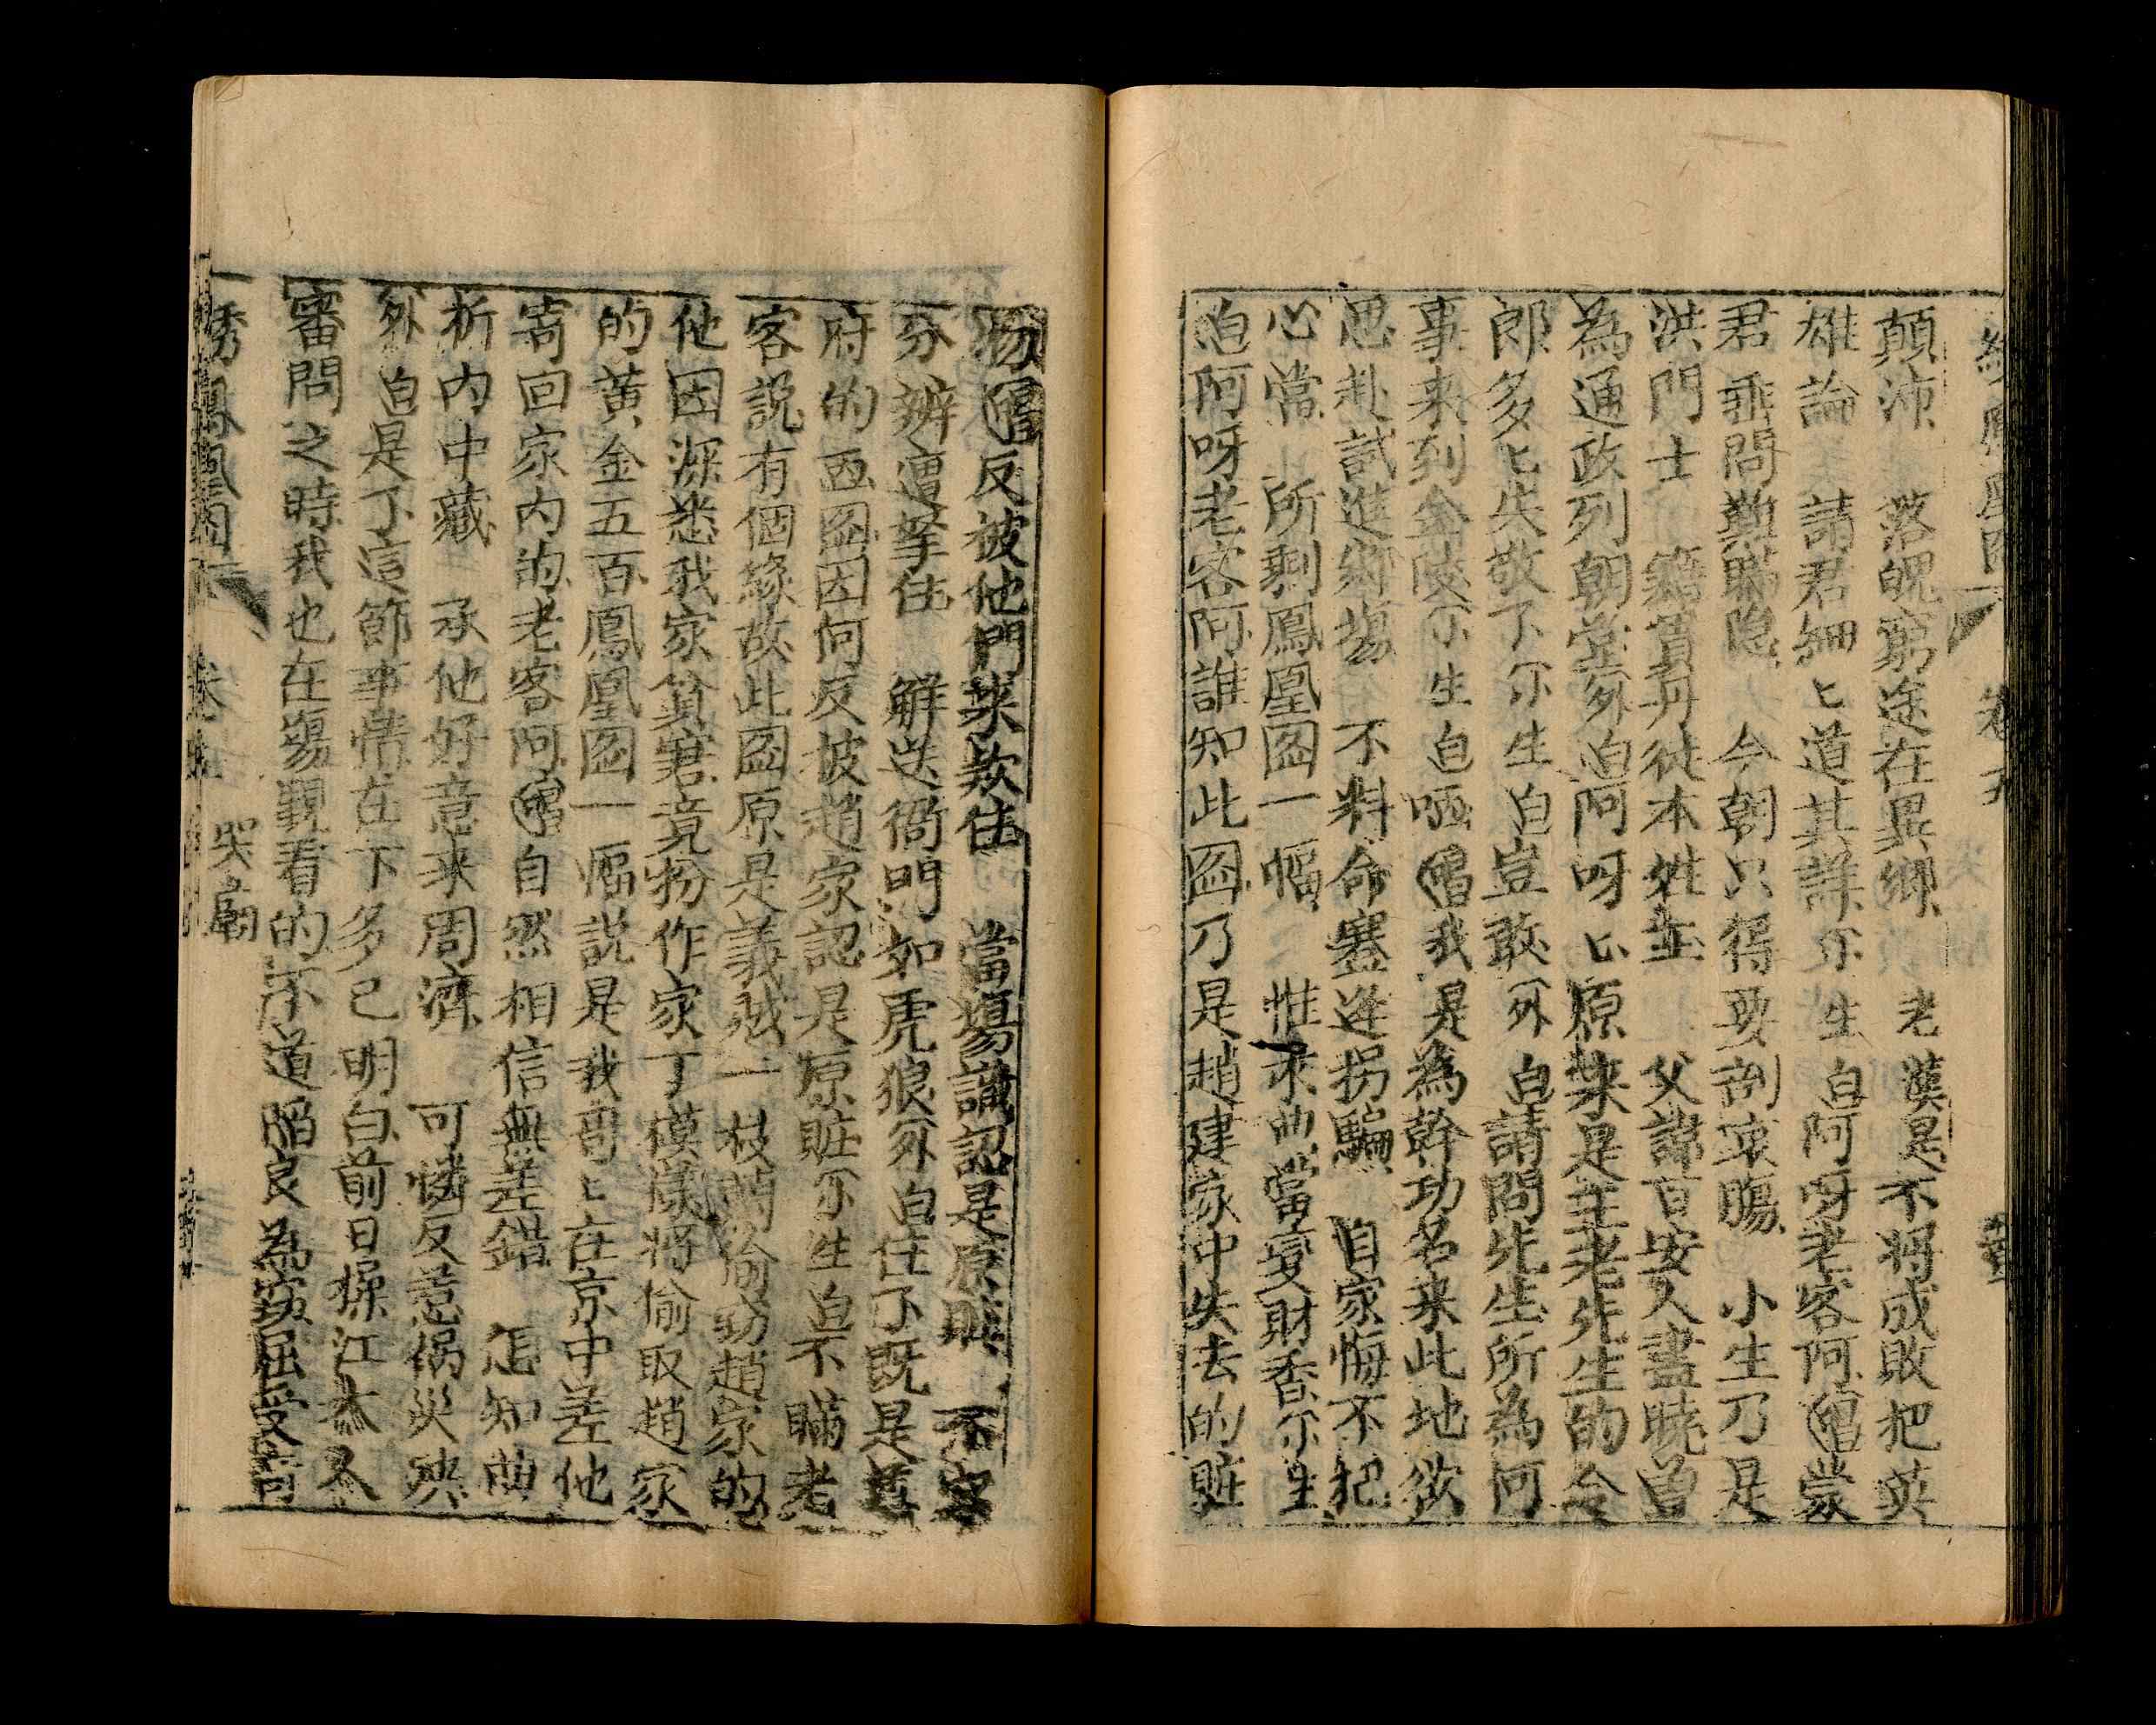 綉鳳凰圖 卷九
顛沛 落魄窮途在異鄉 老漢是不將成敗把英
雄論 請君細匕道其詳尓生白阿呀老客阿唱蒙
君垂問難瞞隱 今朝只得要剖衷腸 小生乃是
洪門士 籍貫丹徒本姓王 父諱百安人盡曉曽
為通政列朝堂外白阿呀匕原来是王老先生的令
郎多匕失敬了尓生白豈敢外白請問先生所為何
事来到金陵尓生白唖唱我是為幹功名来此地欲
思赴試進鄉場 不料命蹇逢拐騙 自家悔不把
心當 所剩鳳凰圖一幅 惟求曲當变財香尓生
白阿呀老客阿誰知此圖乃是趙建家中失去的賍
物唱反被他門来欺住 當場識認是原賍 不容
分辨遭拏住 解送衙門如虎狼外白住了既是
府的画圖因何反被趙家認是原賍尓生白不瞞老
客説有個緣故此圖原是義賊一枝 偷窃趙家的
他因深悉我家貧窘竟扮作家丁模樣将偷取趙家
的黄金五百鳳凰圖一幅説是我哥匕在京中差他
寄回家内的老客阿唱自然相信無差錯 怎知曲
折内中藏 承他好意来周濟 可憐反惹禍災殃
外白是了這節事情在下多已明白前日操江太人
審問之時我也在塲觀看的不道陷良為 屈受
綉鳳凰圖 卷 哭廟